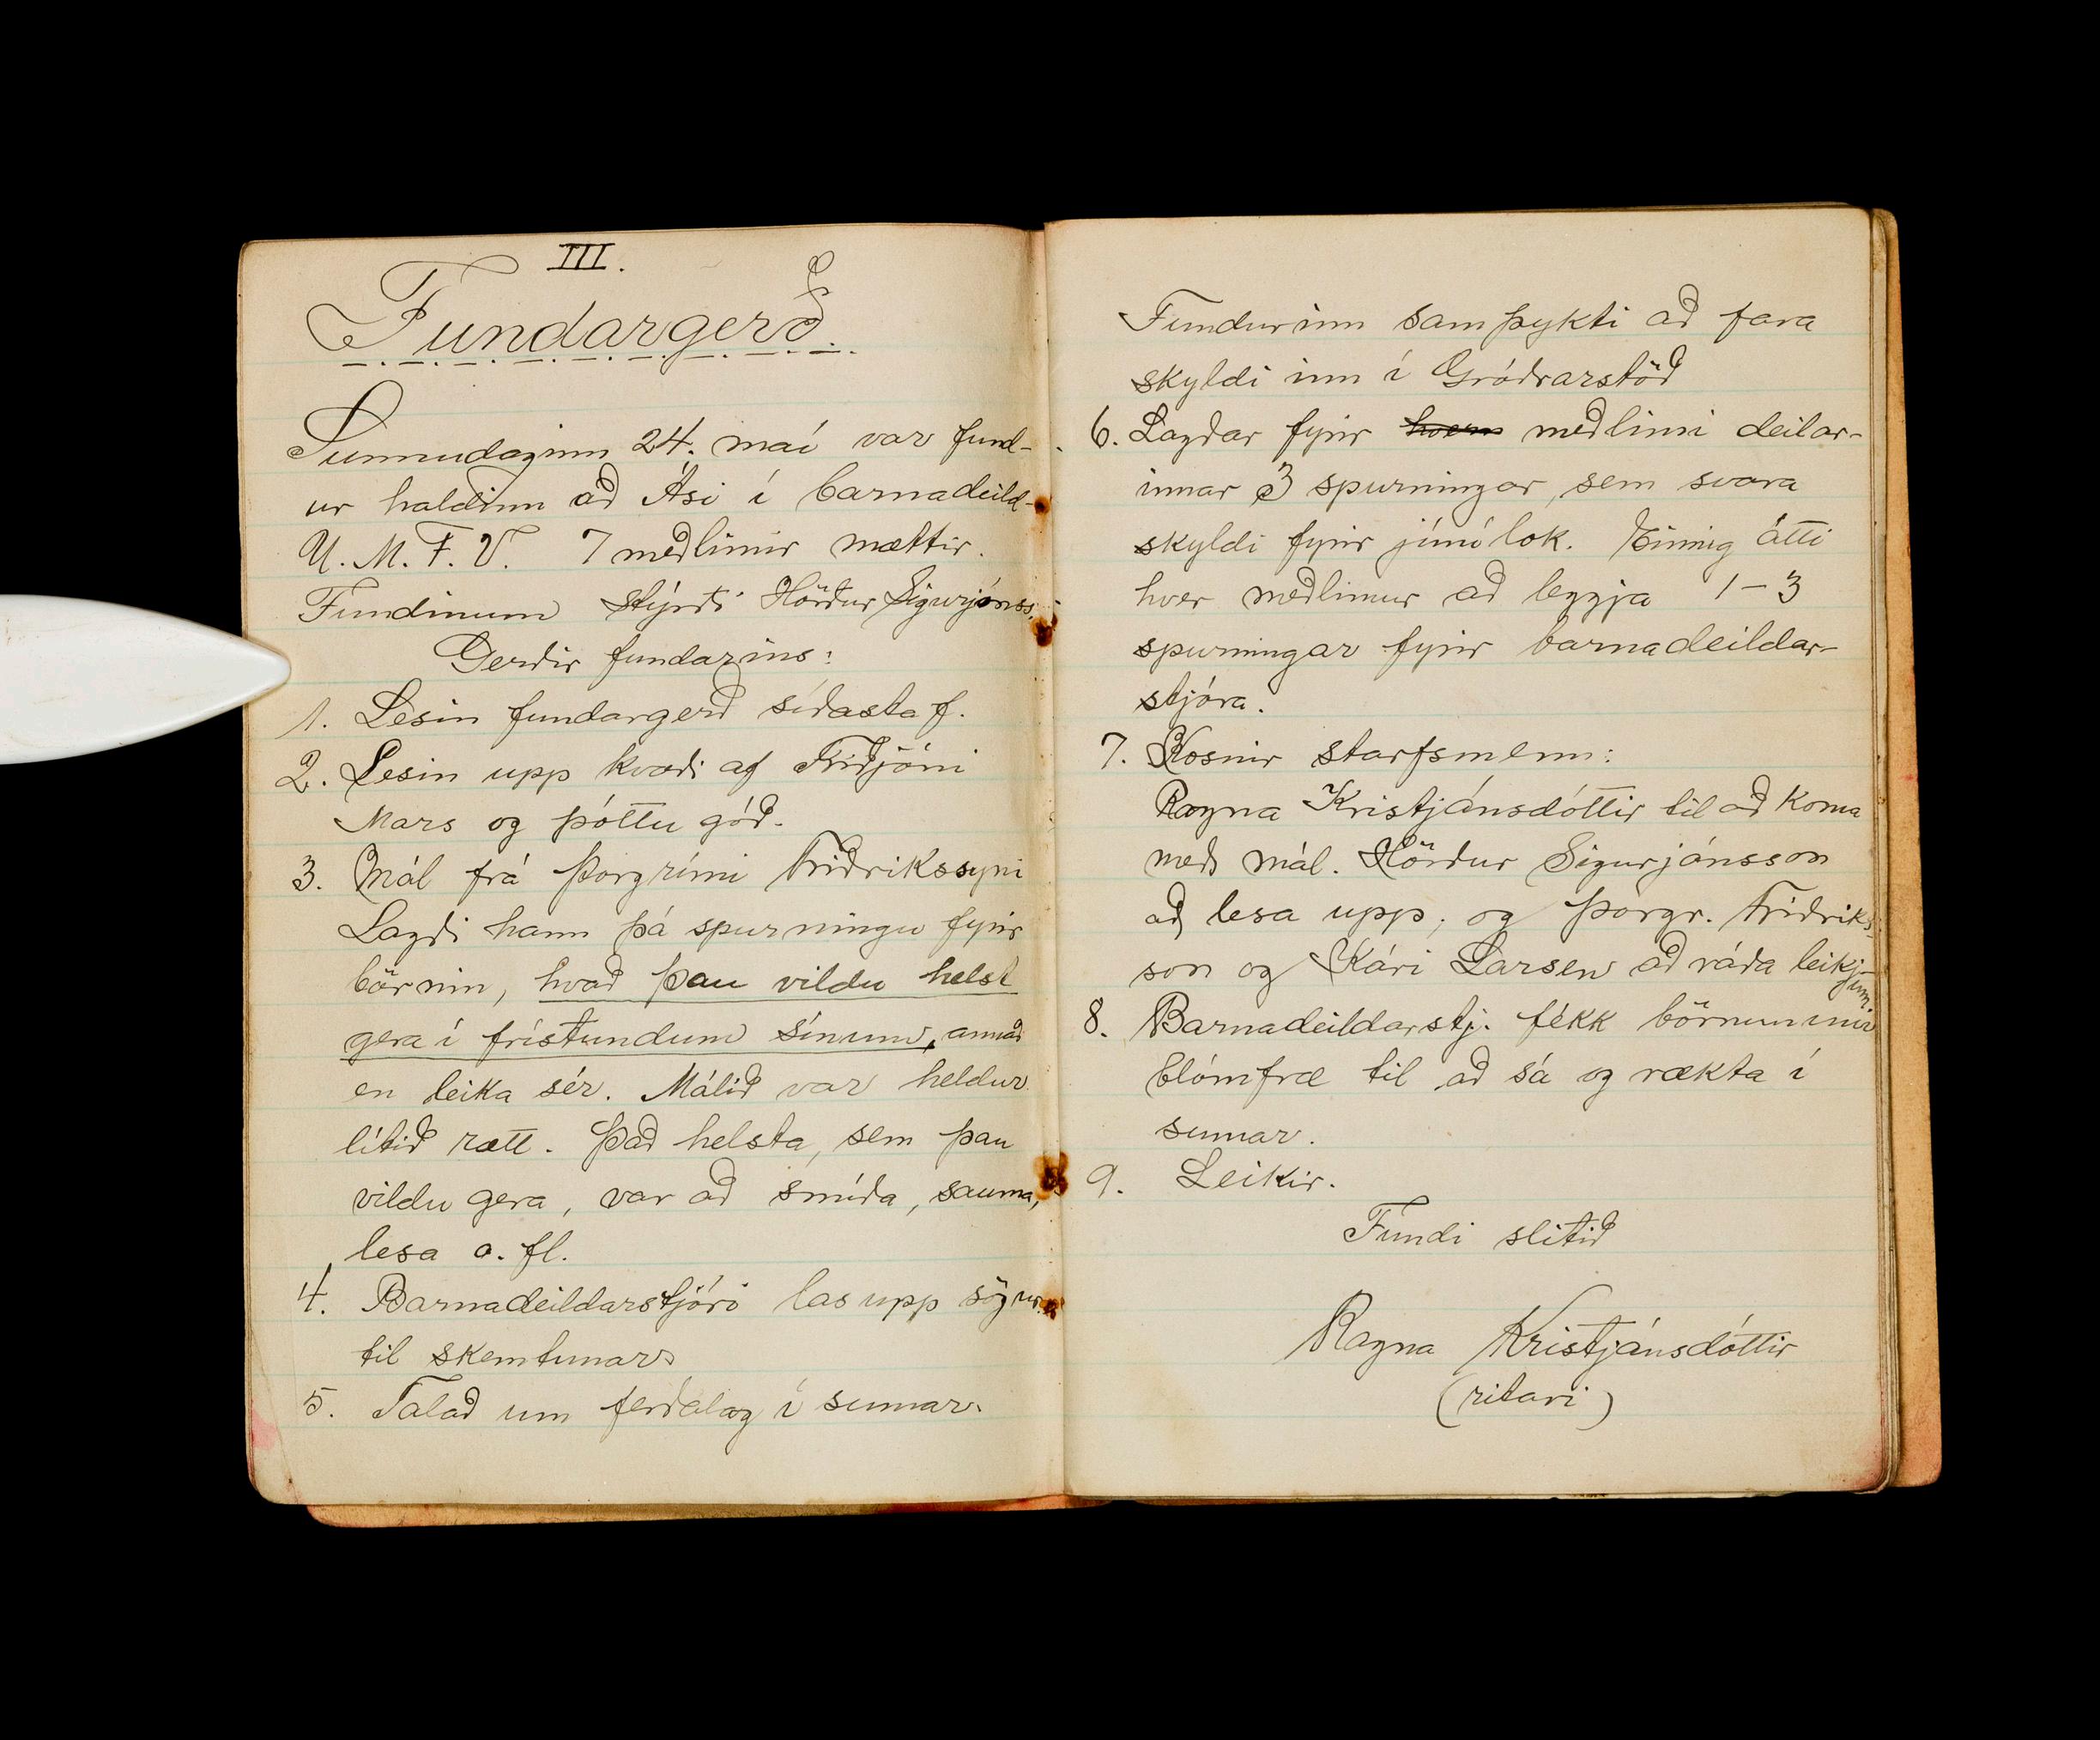 III.
Fundargerð.
Sunnudaginn 24. maí var fund-
ur haldinn að Ási í barnadeild-
U. M. F. V. 7 meðlimir mættir.
Fundinum stýrði Hörður Sigurjónss.
Gerðir fundarins:
1. Lesin fundargerð síðasta f.
2. Lesin upp kvæði af Friðjóni
Mars og þóttu góð.
3. Mál frá Þorgrími Friðrikssyni
Lagði hann þá spurningu fyrir
börnin, hvað þau vildu helst
gera í frístundum sínum, annað
en leika sér. Málið var heldur
lítið rætt. Það helsta, sem þau
vildu gera, var að smíða, sauma,
lesa o. fl.
4. Barnadeildarstjóri las upp sögur
til skemtunar
5. Talað um ferðalag í sumar.
Fundurinn samþykti að fara
skyldi inn í Gróðrarstöð
6. Lagðar fyrir hvern meðlimi deilar-
innar 3 spurningar, sem svara
skyldi fyrir júní lok. Einnig átti
hver meðlimur að leggja 1-3
spurningar fyrir barnadeildar-
stjóra.
7. Kosnir starfsmenn:
Ragna Kristjánsdóttir til að koma
með mál. Hörður Sigurjónsson
að lesa upp, og Þorgr. Friðriks-
son og Kári Larsen að ráða leikj-
um.
8. Barnadeildarstj. fékk börnunum
blómfræ til að sá og rækta í
sumar.
9. Leikir.
Fundi slitið
Ragna Kristjánsdóttir
(ritari)